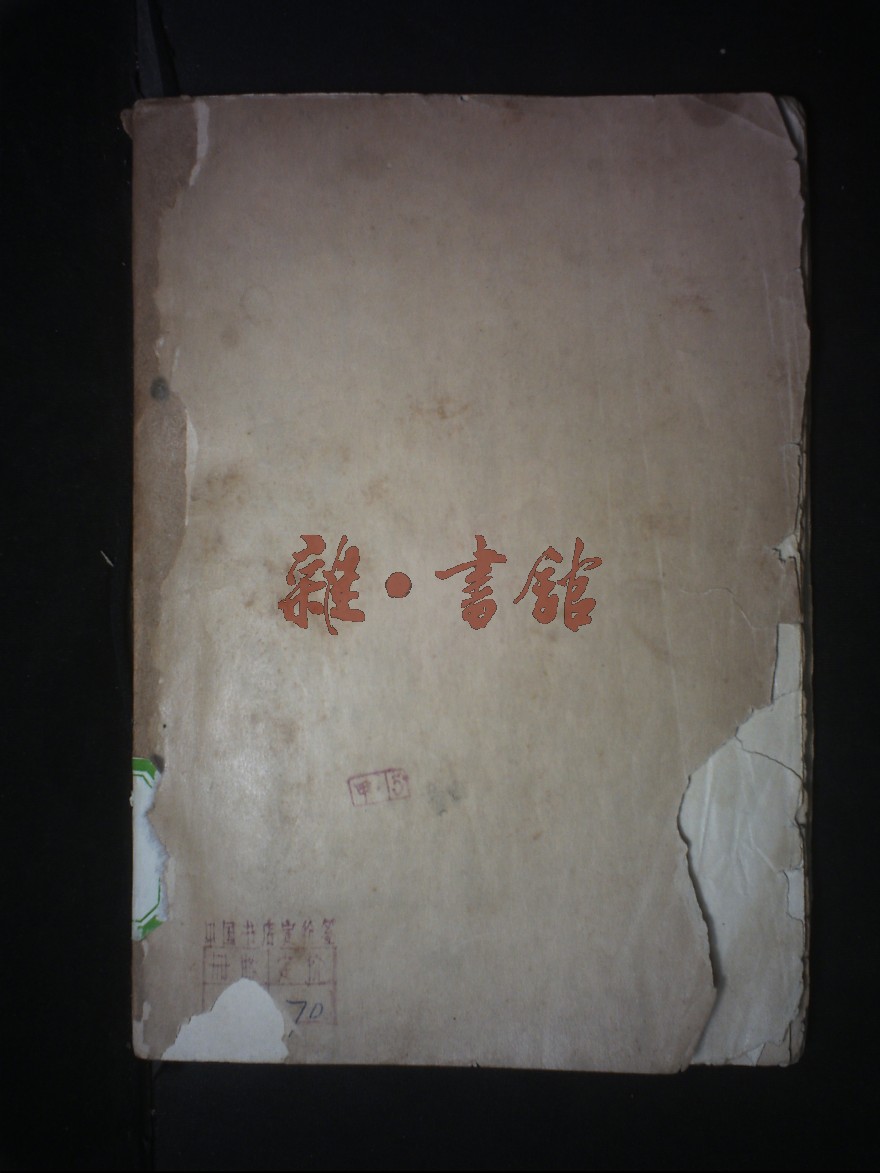 雜·書館
甲·5
中国书店定价签
册数 定价
70